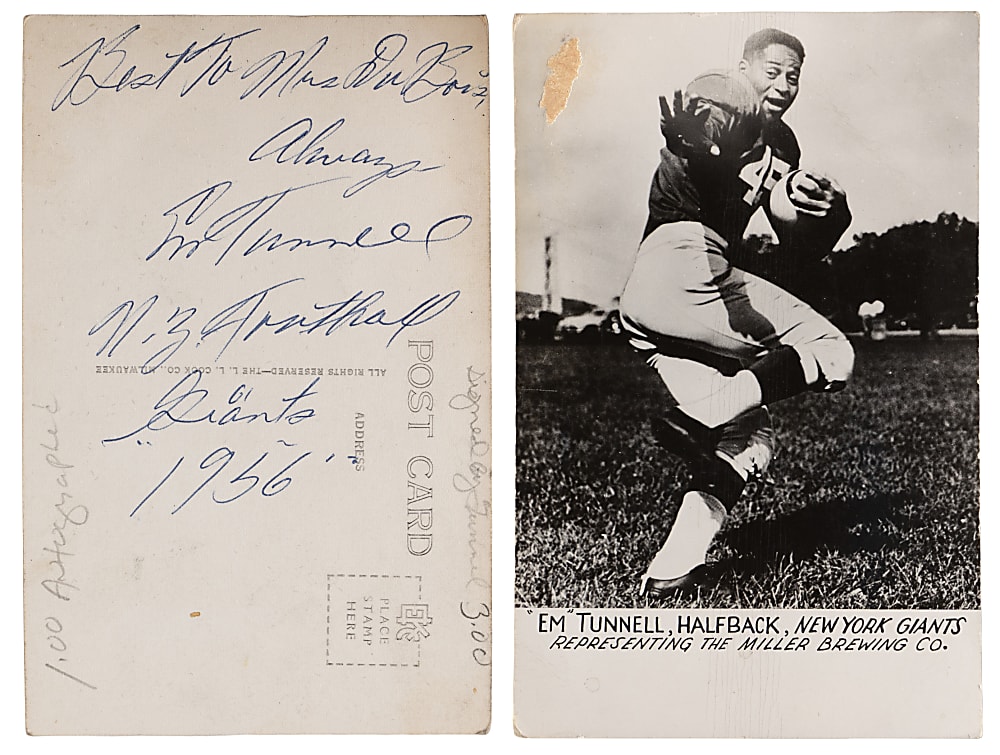 Best To Mrs Du Bois,
Always
Em Tunnell
N.Y. Football
"Giants"
1956
ALL RIGHTS RESERVED—THE L. L. COOK CO., MILWAUKEE
POST CARD
ADDRESS
PLACE
STAMP
HERE
EKC
signed by Tunnell 3.00
1.00 Autographed
45
"EM" TUNNELL, HALFBACK, NEW YORK GIANTS
REPRESENTING THE MILLER BREWING CO.